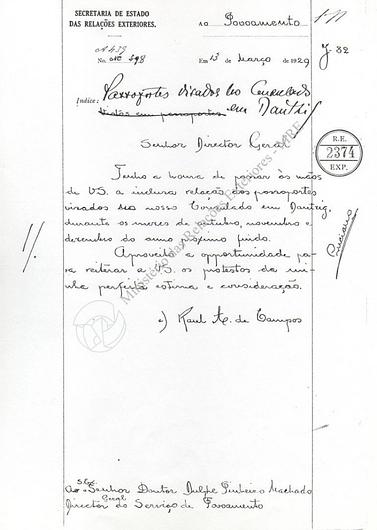 SECRETARIA DE ESTADO
DAS RELAÇÕES EXTERIORES.
Ao Povoamento
No. 398
Em 13 de Março de 1929
J. 32
Indice: Passaportes visados no Consulado
Vistos em passaportes em Dantzig
Senhor Director Geral
R.E.
2374
EXP.
Tenho a honra de passar ás mãos
de V.S. a inclusa relação dos passaportes
visados no nosso Consulado em Dantzig,
durante os mezes de outubro, novembro e
dezembro do anno proximo findo.
Aproveito a opportunidade pa-
ra reiterar a V.S. os protestos da mi-
nha perfeita estima e consideração.
a) Raul A. de Campos
Ministério das Relações Exteriores - MRE
Senhor Doutor Dulphe Pinheiro Machado
Director Geral do Serviço de Povoamento